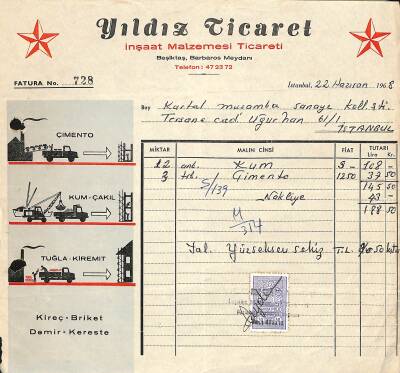 Yıldız Ticaret
İnşaat Malzemesi Ticareti
Beşiktaş, Barbaros Meydanı
Telefon: 47 23 72
FATURA No. 728
İstanbul, 22 Haziran 1968
Bay Kartal muşamba sanayi koll. şti.
Tersane cad. Uğur han 61/1
İSTANBUL
ÇİMENTO
KUM-ÇAKIL
TUĞLA-KİREMİT
Kireç - Briket
Demir - Kereste
MİKTAR MALIN CİNSİ FİAT TUTARI
Lira Kr.
12 Kum 108 -
3 Çimento 1250 37 50
145 50
S/139
Nakliye 43 -
188 50
M/314
Yal. Yüzseksen sekiz T.L.